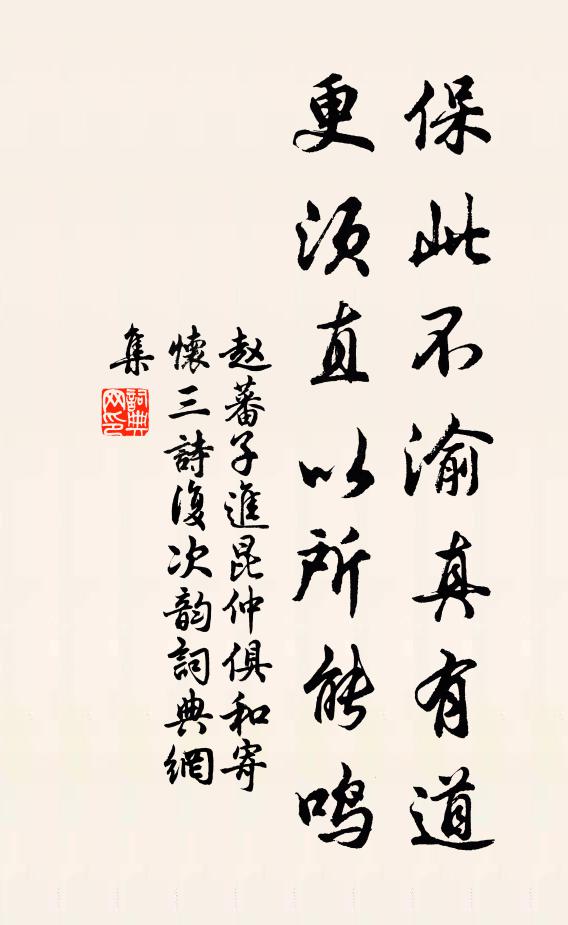 保此不渝真有道
更须直以所能鸣
赵蕃子進昆仲俱和寄
懷三詩復次韵詞典網
集
詞典网印